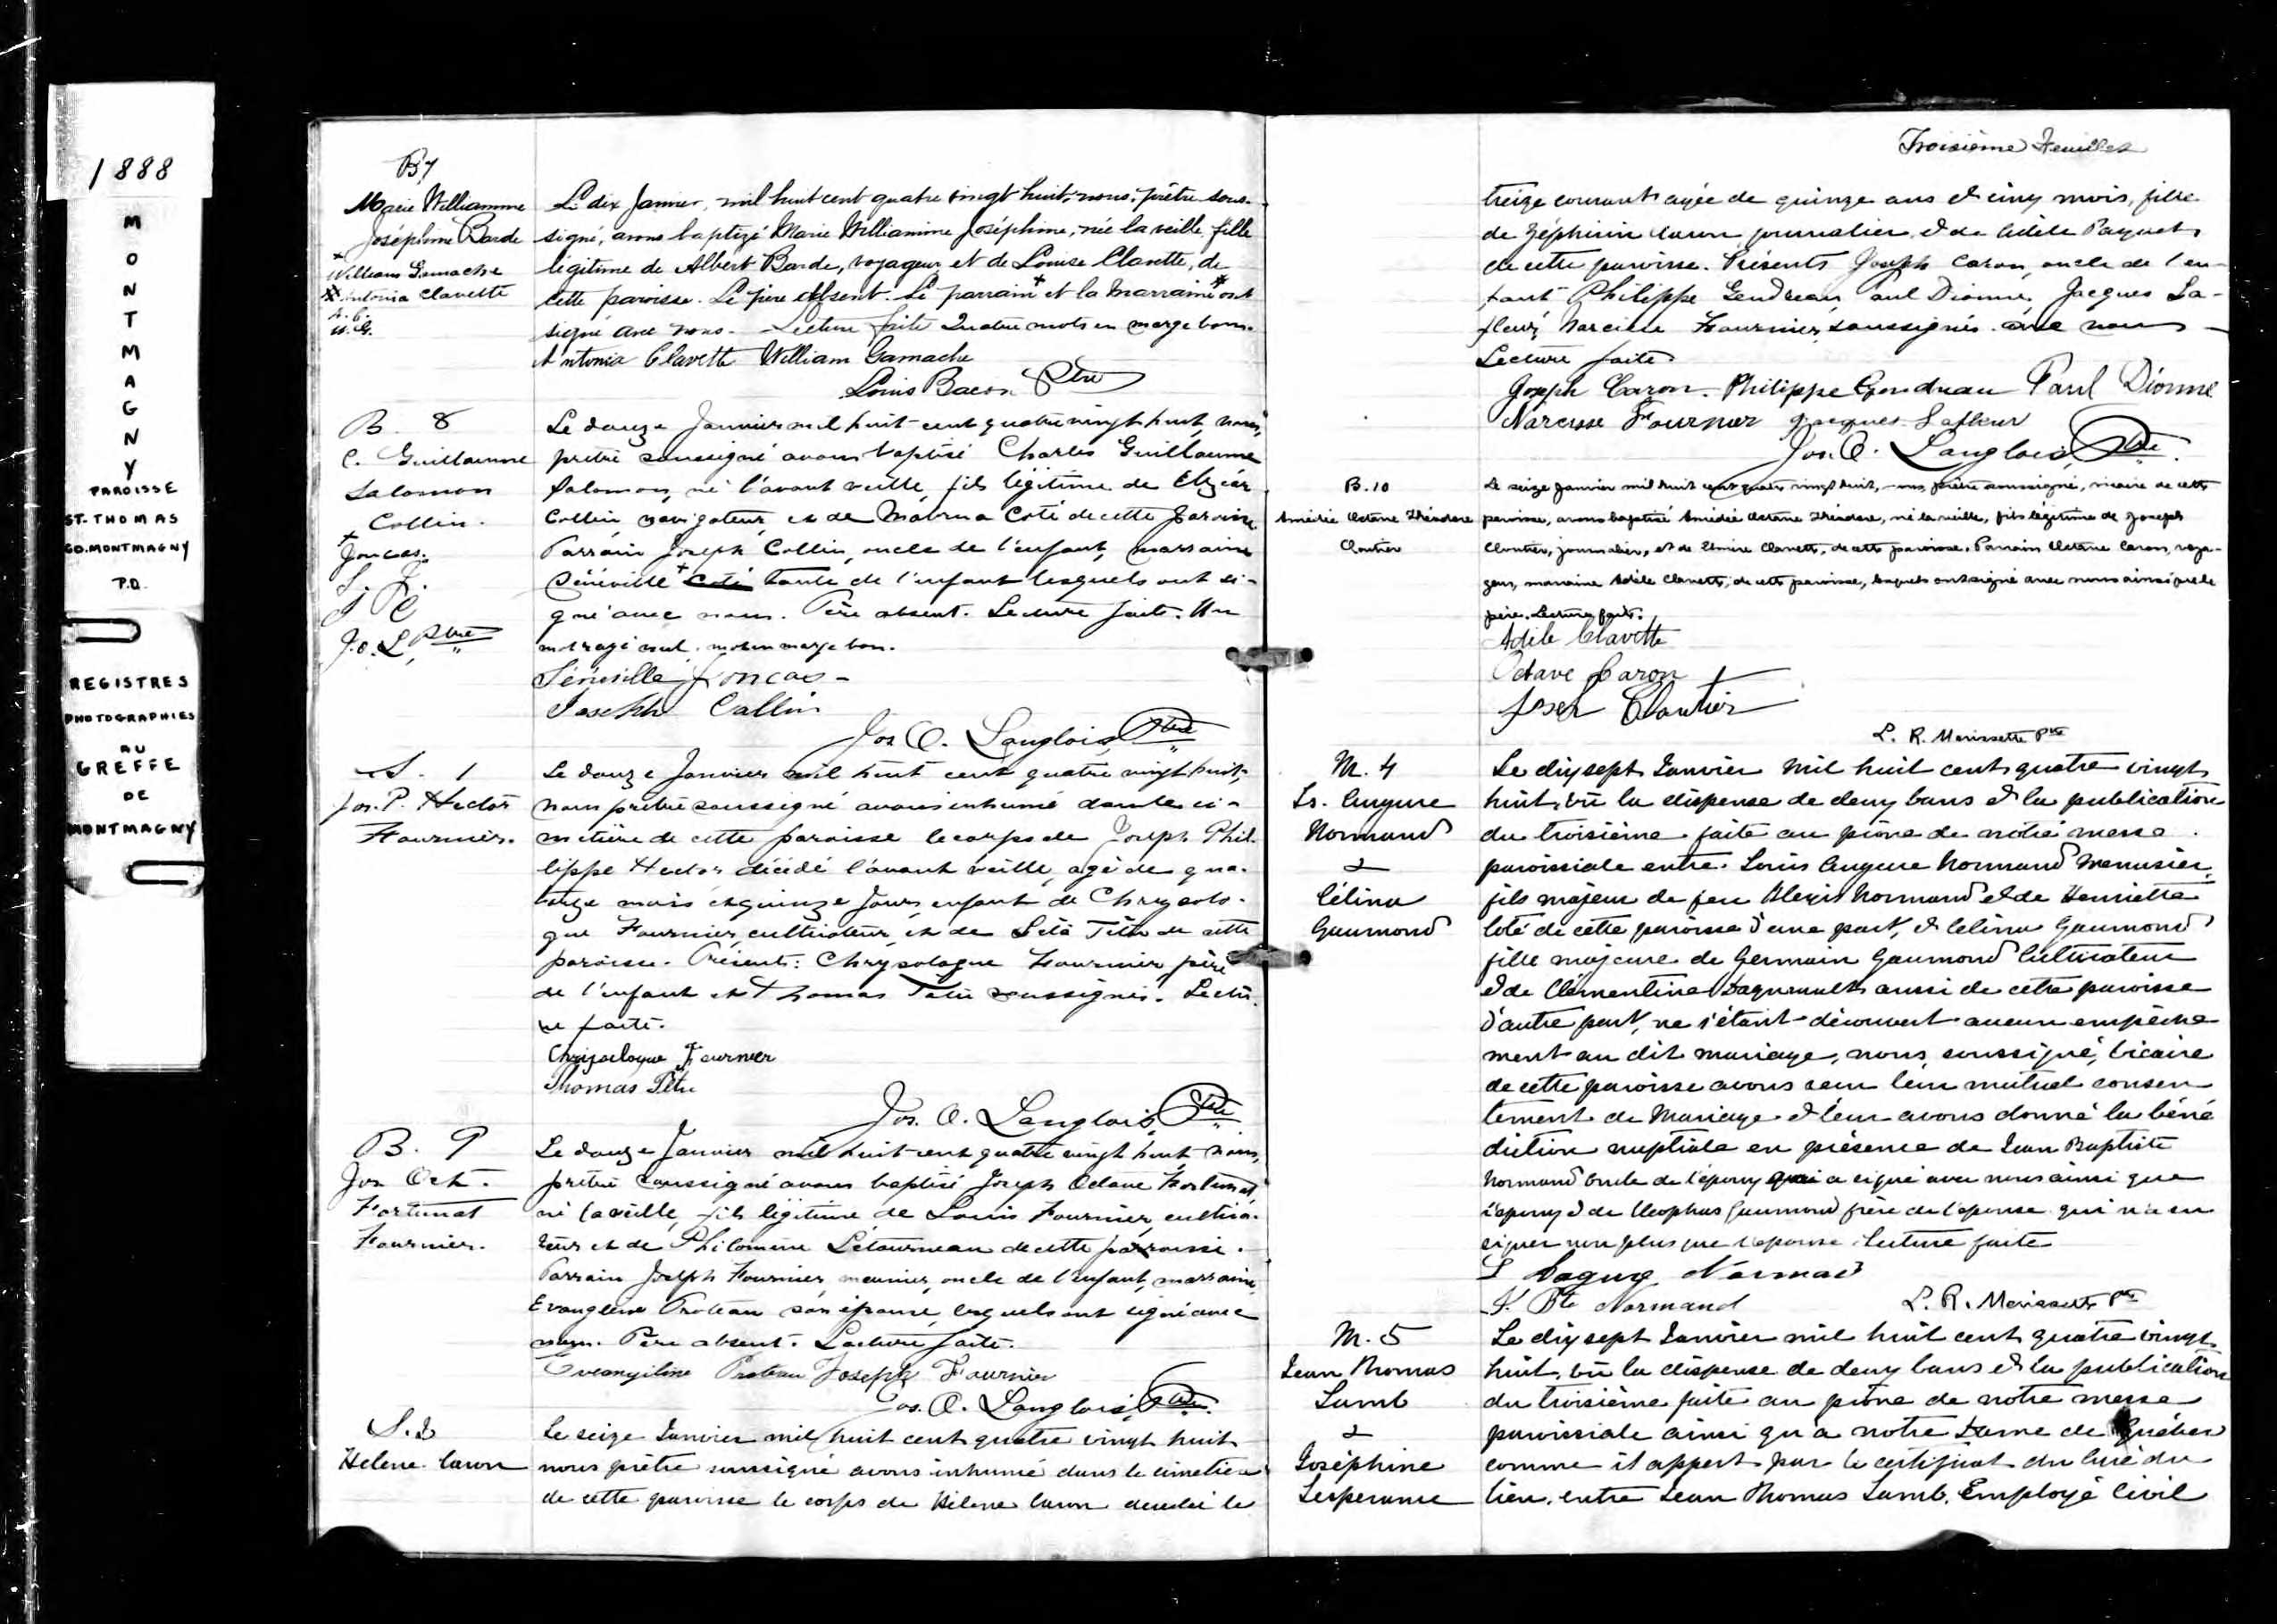 1888
MONTMAGNY
PAROISSE
ST. THOMAS
CO. MONTMAGNY
P.Q.
REGISTRES
PHOTOGRAPHIES
AU
GREFFE
DE
MONTMAGNY
B 7
Marie Williamine
Joséphine Barde
+
William Gamache
* Antonia Clavette
A. C.
W. G.
Le dix Janvier, mil huit cent quatre vingt huit, nous prêtre sous-
signé, avons baptizé Marie Williamine Joséphine, née la veille, fille
légitime de Albert Barde, voyageur et de Louise Clavette, de
cette paroisse. Le père absent. Le parrain + et la marraine * ont
signé avec nous. Lecture faite Quatre mots en marge bons.
Antonia Clavette William Gamache
Louis Bacon Ptre
B. 8
C. Guillaume
Salomon
Collin.
+
Joncas.
S. J.
J C
J. O. L. Ptre
Le douze Janvier mil huit cent quatre vingt huit, nous,
prêtre soussigné avons baptisé Charles Guillaume
Salomon, né l'avant veille, fils légitime de Elzéar
Collin, navigateur, et de Coté de cette paroisse
Parrain Joseph Collin, oncle de l'enfant, marraine
Séréville + Coté tante de l'enfant lesquels ont si-
gné avec nous. Père absent. Lecture faite. Un
mot rayé nul, mot en marge bon.
Séréville Joncas
Joseph Collin
Jos. O. Langlois, Ptre
S. 1
Jos. P. Hector
Fournier.
Le douze Janvier mil huit cent quatre vingt huit,
nous prêtre soussigné avons inhumé dans le ci-
metière de cette paroisse le corps de Joseph Phil-
lippe Hector, décédé l'avant veille, agé de qua-
torze mois et quinze jours, enfant de Chrysolo-
gue Fournier, cultivateur, et de Têtu de cette
paroisse. Présents: Chrysologue Fournier père
de l'enfant et Thomas Tétu soussignés. Lectu-
re faite.
Chrysologue Fournier
Thomas Tétu
Jos. O. Langlois, Ptre
B. 9
Jos Oct.
Fortunat
Fournier.
Le douze Janvier mil huit cent quatre vingt huit nous,
prêtre soussigné avons baptisé Joseph Octave Fortunat,
né la veille, fils légitime de Louis Fournier, cultiva-
teur et de Philomène Letourneau de cette paroisse.
Parrain Joseph Fournier, meunier, oncle de l'enfant, marraine,
Evangeline Proteau son épouse, lesquels ont signé avec
nous. Père absent. Lecture faite.
Evangiline Proteau Joseph Fournier
Jos. O. Langlois, Ptre
S. 2
Helene Caron
Le seize Janvier mil huit cent quatre vingt huit
nous prêtre soussigné avons inhumé dans le cimetière
de cette paroisse le corps de Hélene Caron décédée le
Troisième Feuillet
treize courant agée de quinze ans et cinq mois, fille
de Zéphirin Caron journalier et de Adèle Paquet
de cette paroisse. Présents Joseph Caron, oncle de l'en-
fant Philippe Gendreau, Paul Dionne, Jacques La-
fleur, Narcisse Fournier, soussignés avec nous
Lecture faite.
Joseph Caron. Philippe Gendreau Paul Dionne
Narcisse Fournier Jacques Lafleur
Jos. O. Langlois, Ptre
B. 10
Amédée Octave Théodore
Cloutier
Le seize Janvier mil huit cent quatre vingt huit, nous, prêtre soussigné, vicaire de cette
paroisse, avons baptisé Amédée Octave Théodore, né la veille, fils légitime de Joseph
Cloutier, journalier, et de Clavette, de cette paroisse. Parrain Octave Caron, voya-
geur, marraine Adèle Clavette, de cette paroisse, lesquels ont signé avec nous ainsi que le
père. Lecture faite.
Adèle Clavette
Octave Caron
Joseph Cloutier
L. R. Morissette Ptre
M. 4
Ls. Augure
Normand
&
Célina
Gaumond
Le dix sept Janvier mil huit cent quatre vingt
huit, vû la dispense de deux bans et la publication
du troisième faite au prône de notre messe
paroissiale entre Louis Augure Normand Menusier,
fils majeur de feu Alexis Normand et de Henriette
Coté de cette paroisse d'une part, et Célina Gaumond
fille majeure de Germain Gaumond Cultivateur
et de Clémentine Dagneault aussi de cette paroisse
d'autre part, ne s'étant découvert aucun empêche
ment au dit mariage, nous, soussigné, vicaire
de cette paroisse avons reçu leur mutuel consen
tement de Mariage et leur avons donné la béné
diction nuptiale en présence de Jean Baptiste
Normand oncle de l'époux qui a signé avec nous ainsi que
l'époux et de Cleophas Gaumond frère de l'épouse qui n'a su
signer non plus que l'épouse. Lecture faite
L Normand
J. Bte Normand
L. R. Morissette Ptre
M. 5
Jean Thomas
Lamb
&
Joséphine
Lesperance
Le dix sept Janvier mil huit cent quatre vingt
huit, vû la dispense de deux bans et la publication
du troisième faite au prône de notre messe
paroissiale ainsi qu'a notre Dame de Québec
comme il appert par le certificat du Curé du
lieu, entre Jean Thomas Lamb, Employé Civil